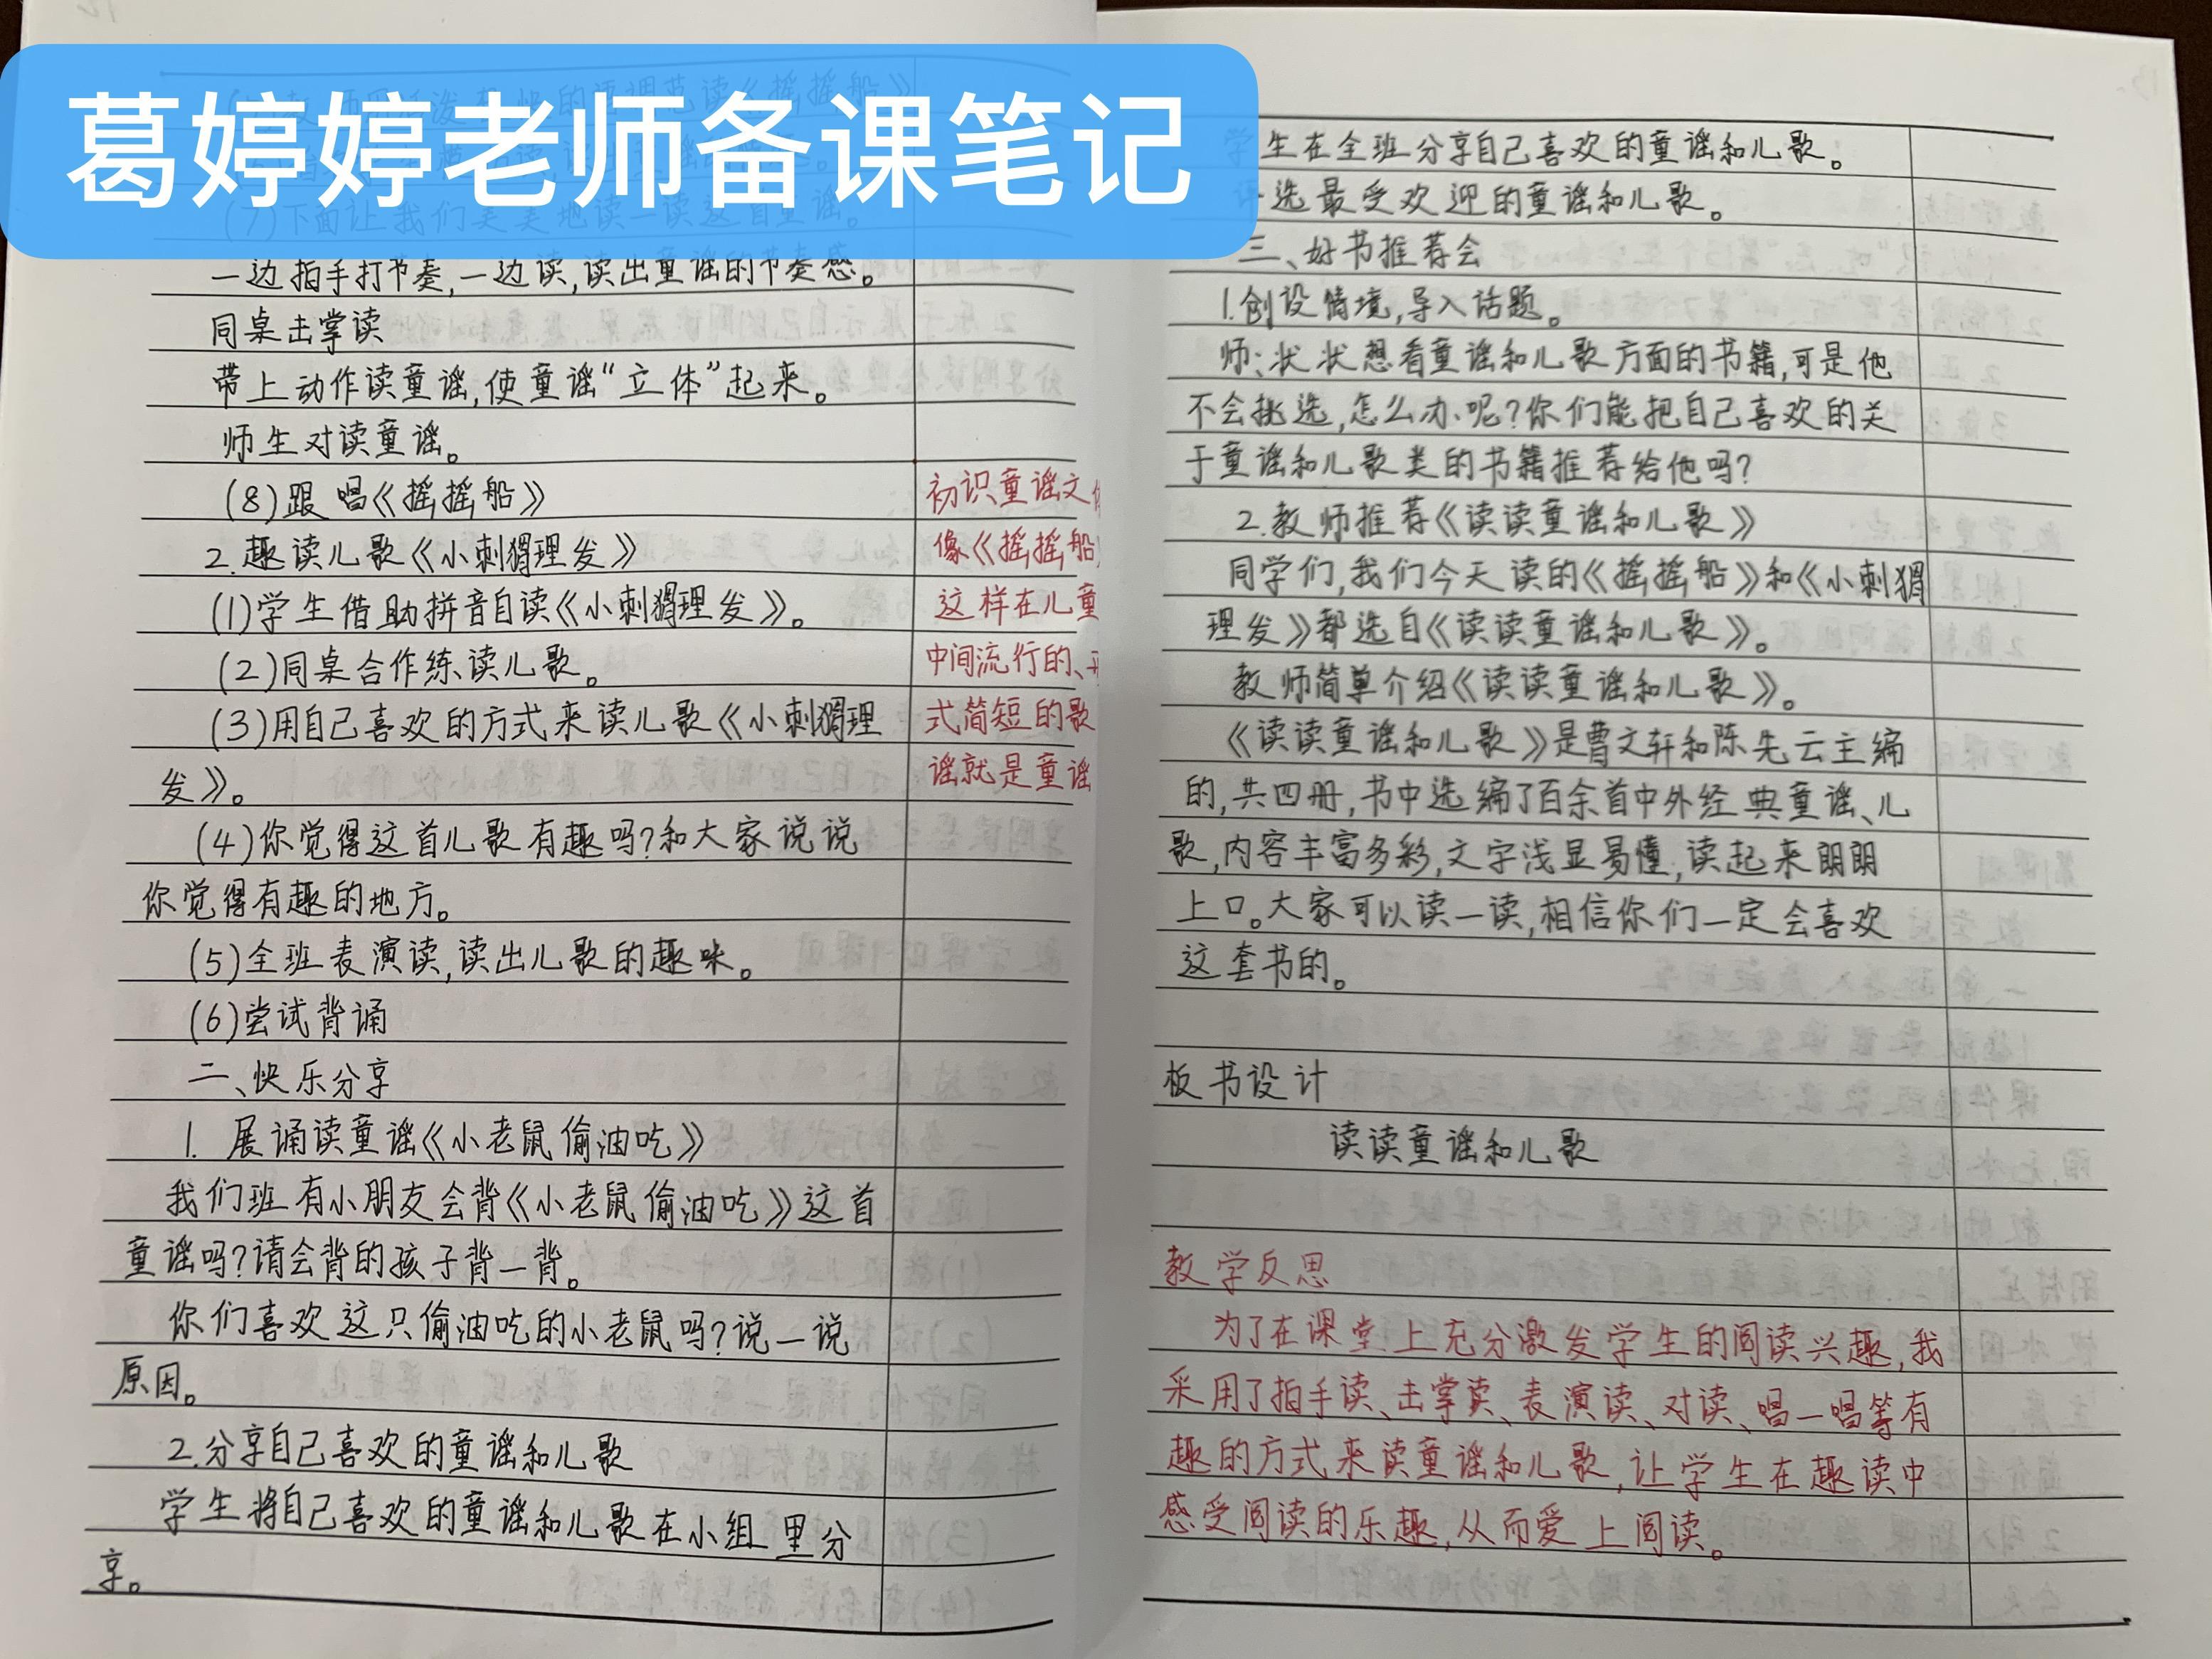 葛婷婷老师备课笔记
(7)下面让我们美美地读一读这首童谣。
一边拍手打节奏,一边读,读出童谣的节奏感。
同桌击掌读
带上动作读童谣,使童谣“立体”起来。
师生对读童谣。
(8)跟唱《摇摇船》
2.趣读儿歌《小刺猬理发》
(1)学生借助拼音自读《小刺猬理发》。
(2)同桌合作练读儿歌。
(3)用自己喜欢的方式来读儿歌《小刺猬理
发》。
(4)你觉得这首儿歌有趣吗?和大家说说
你觉得有趣的地方。
(5)全班表演读,读出儿歌的趣味。
(6)尝试背诵
二、快乐分享
1. 展诵读童谣《小老鼠偷油吃》
我们班有小朋友会背《小老鼠偷油吃》这首
童谣吗?请会背的孩子背一背。
你们喜欢这只偷油吃的小老鼠吗?说一说
原因。
2.分享自己喜欢的童谣和儿歌
学生将自己喜欢的童谣和儿歌在小组里分
享。
初识童谣文
像《摇摇船》
这样在儿童
中间流行的、
式简短的歌
谣就是童谣
学生在全班分享自己喜欢的童谣和儿歌。
选最受欢迎的童谣和儿歌。
三、好书推荐会
1.创设情境,导入话题。
师:状状想看童谣和儿歌方面的书籍,可是他
不会挑选,怎么办呢?你们能把自己喜欢的关
于童谣和儿歌类的书籍推荐给他吗?
2.教师推荐《读读童谣和儿歌》
同学们,我们今天读的《摇摇船》和《小刺猬
理发》都选自《读读童谣和儿歌》。
教师简单介绍《读读童谣和儿歌》。
《读读童谣和儿歌》是曹文轩和陈先云主编
的,共四册,书中选编了百余首中外经典童谣、儿
歌,内容丰富多彩,文字浅显易懂,读起来朗朗
上口。大家可以读一读,相信你们一定会喜欢
这套书的。
板书设计
读读童谣和儿歌
教学反思
为了在课堂上充分激发学生的阅读兴趣,我
采用了拍手读、击掌读、表演读、对读、唱一唱等有
趣的方式来读童谣和儿歌,让学生在趣读中
感受阅读的乐趣,从而爱上阅读。